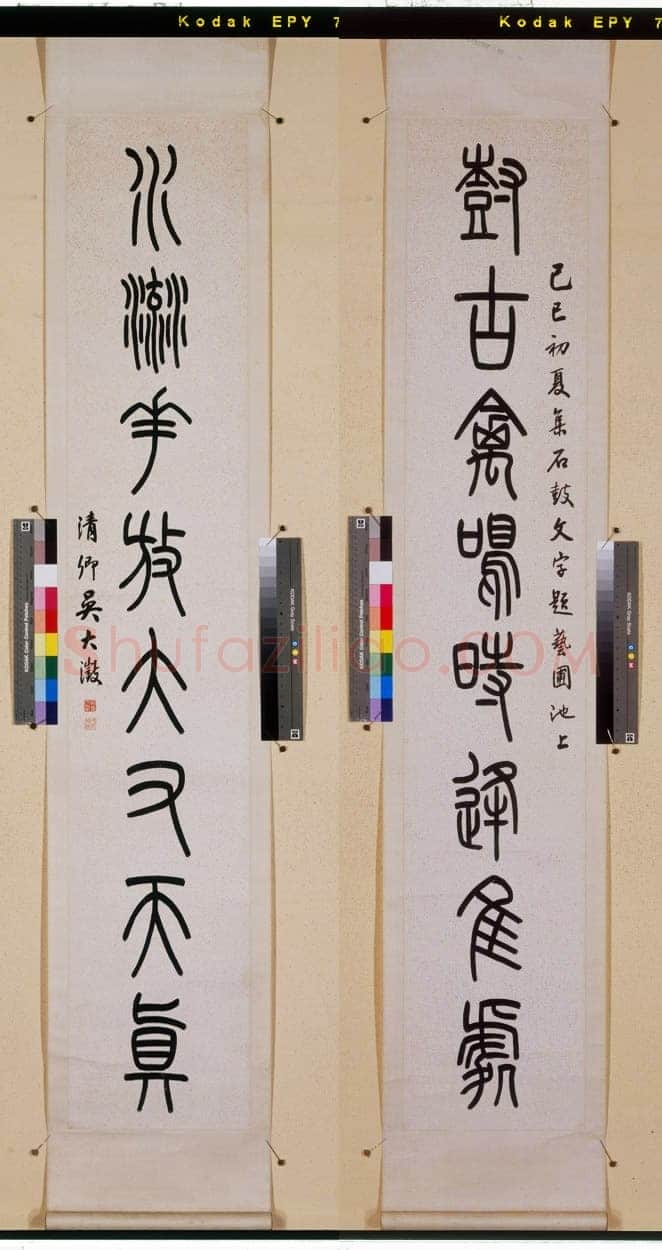 Kodak EPY 7
Kodak EPY 7
己巳初夏集石鼓文字題藝圃池上
尌古禽鳴時逢隹處
水流華放大又天真
清卿吳大澂
Shufaziliao.COM